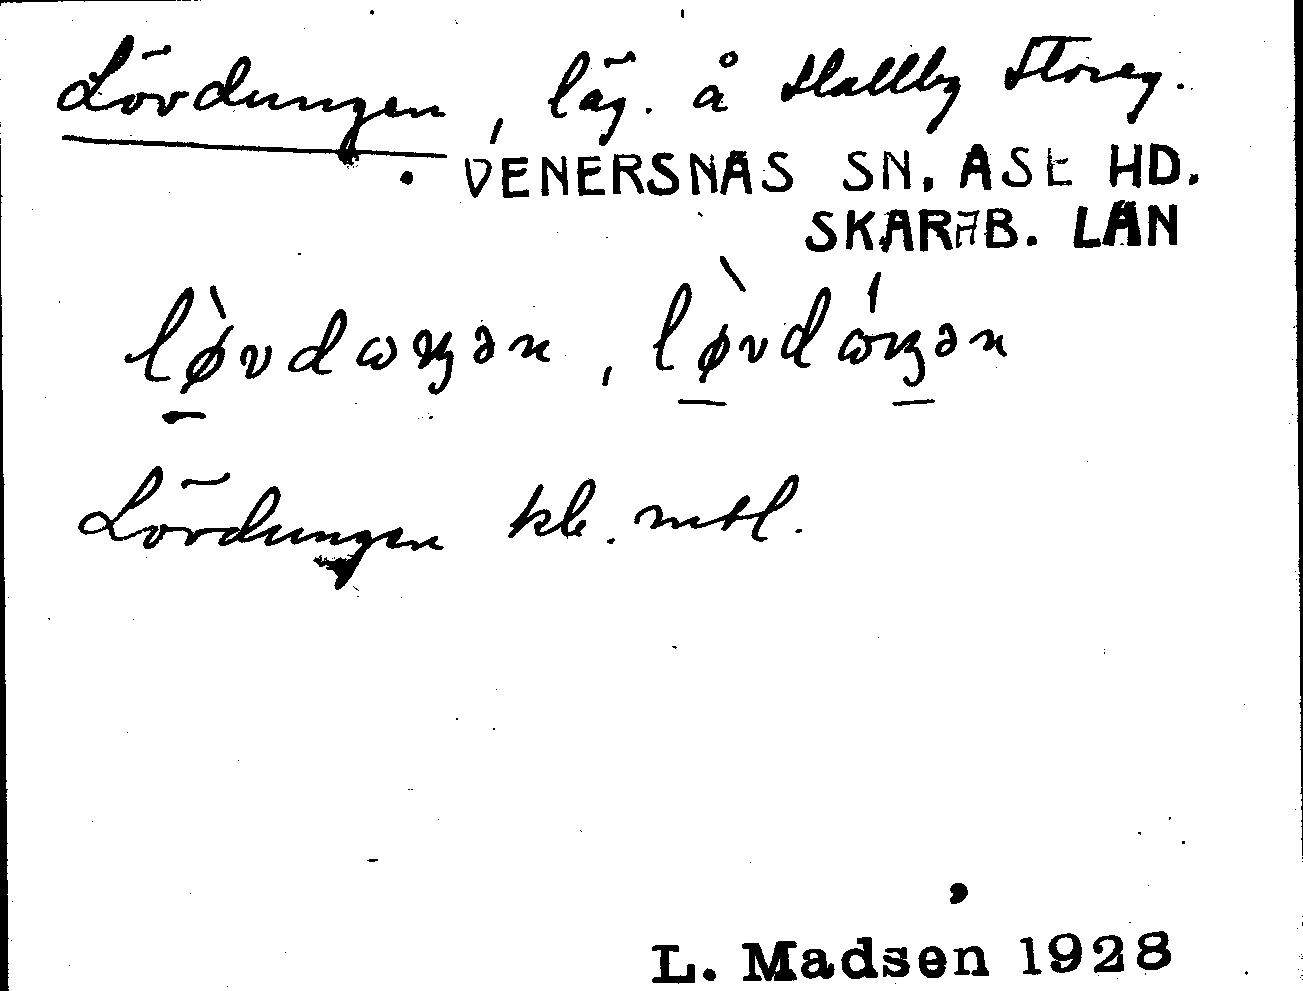 Lövdungen, läg. å Hallby Storeg.
VENERSNÄS SN. ÅSE HD.
SKARAB. LÄN
lø̀vdωŋən, lø̀vdώŋən
Lövdungen kb. mtl.
L. Madsen 1928